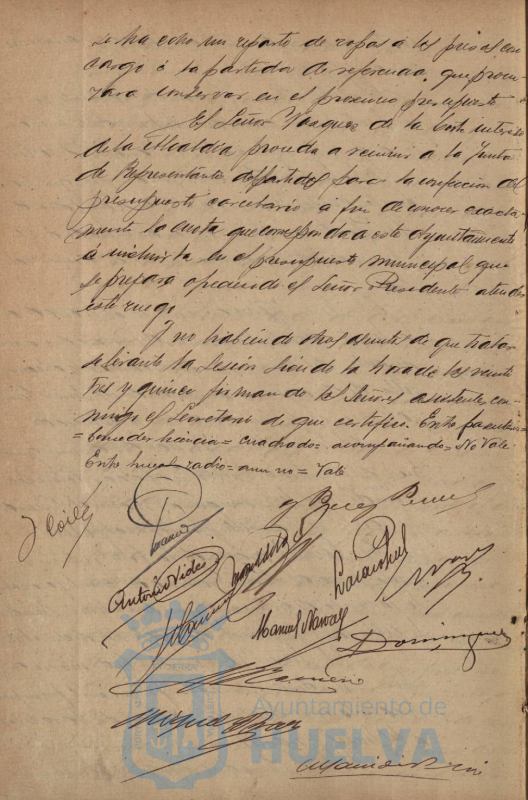 se ha echo un reparto de ropas á los presos con
cargo á la partida de referencia, que procu
rara conservar en el proximo presupuesto
El Señor Vazquez de la Corte interesa
de la Alcaldia proceda a reunir á la Junta
de Representantes del partido para la confeccion del
presupuesto carcelario á fin de conocer exacta
mente la cuota que corresponda á este Ayuntamiento
é incluirla en el presupuesto municipal que
se prepara ofreciendo el Señor Presidente atender
este ruego
Y no habiendo otros asuntos de que tratar
se levantó la Sesión siendo la hora de las veinte
tres y quince firmando los Señores asistentes con
migo el Secretario de que certifico. Entre parentesis=
= conceder licencia= cuadrado= acompañando= No Vale
Entre lineas radio= aun no= Vale
Antonio Vides
Manuel Narvaez
Dominguez
Miguel Baez
Ayuntamiento de
HUELVA